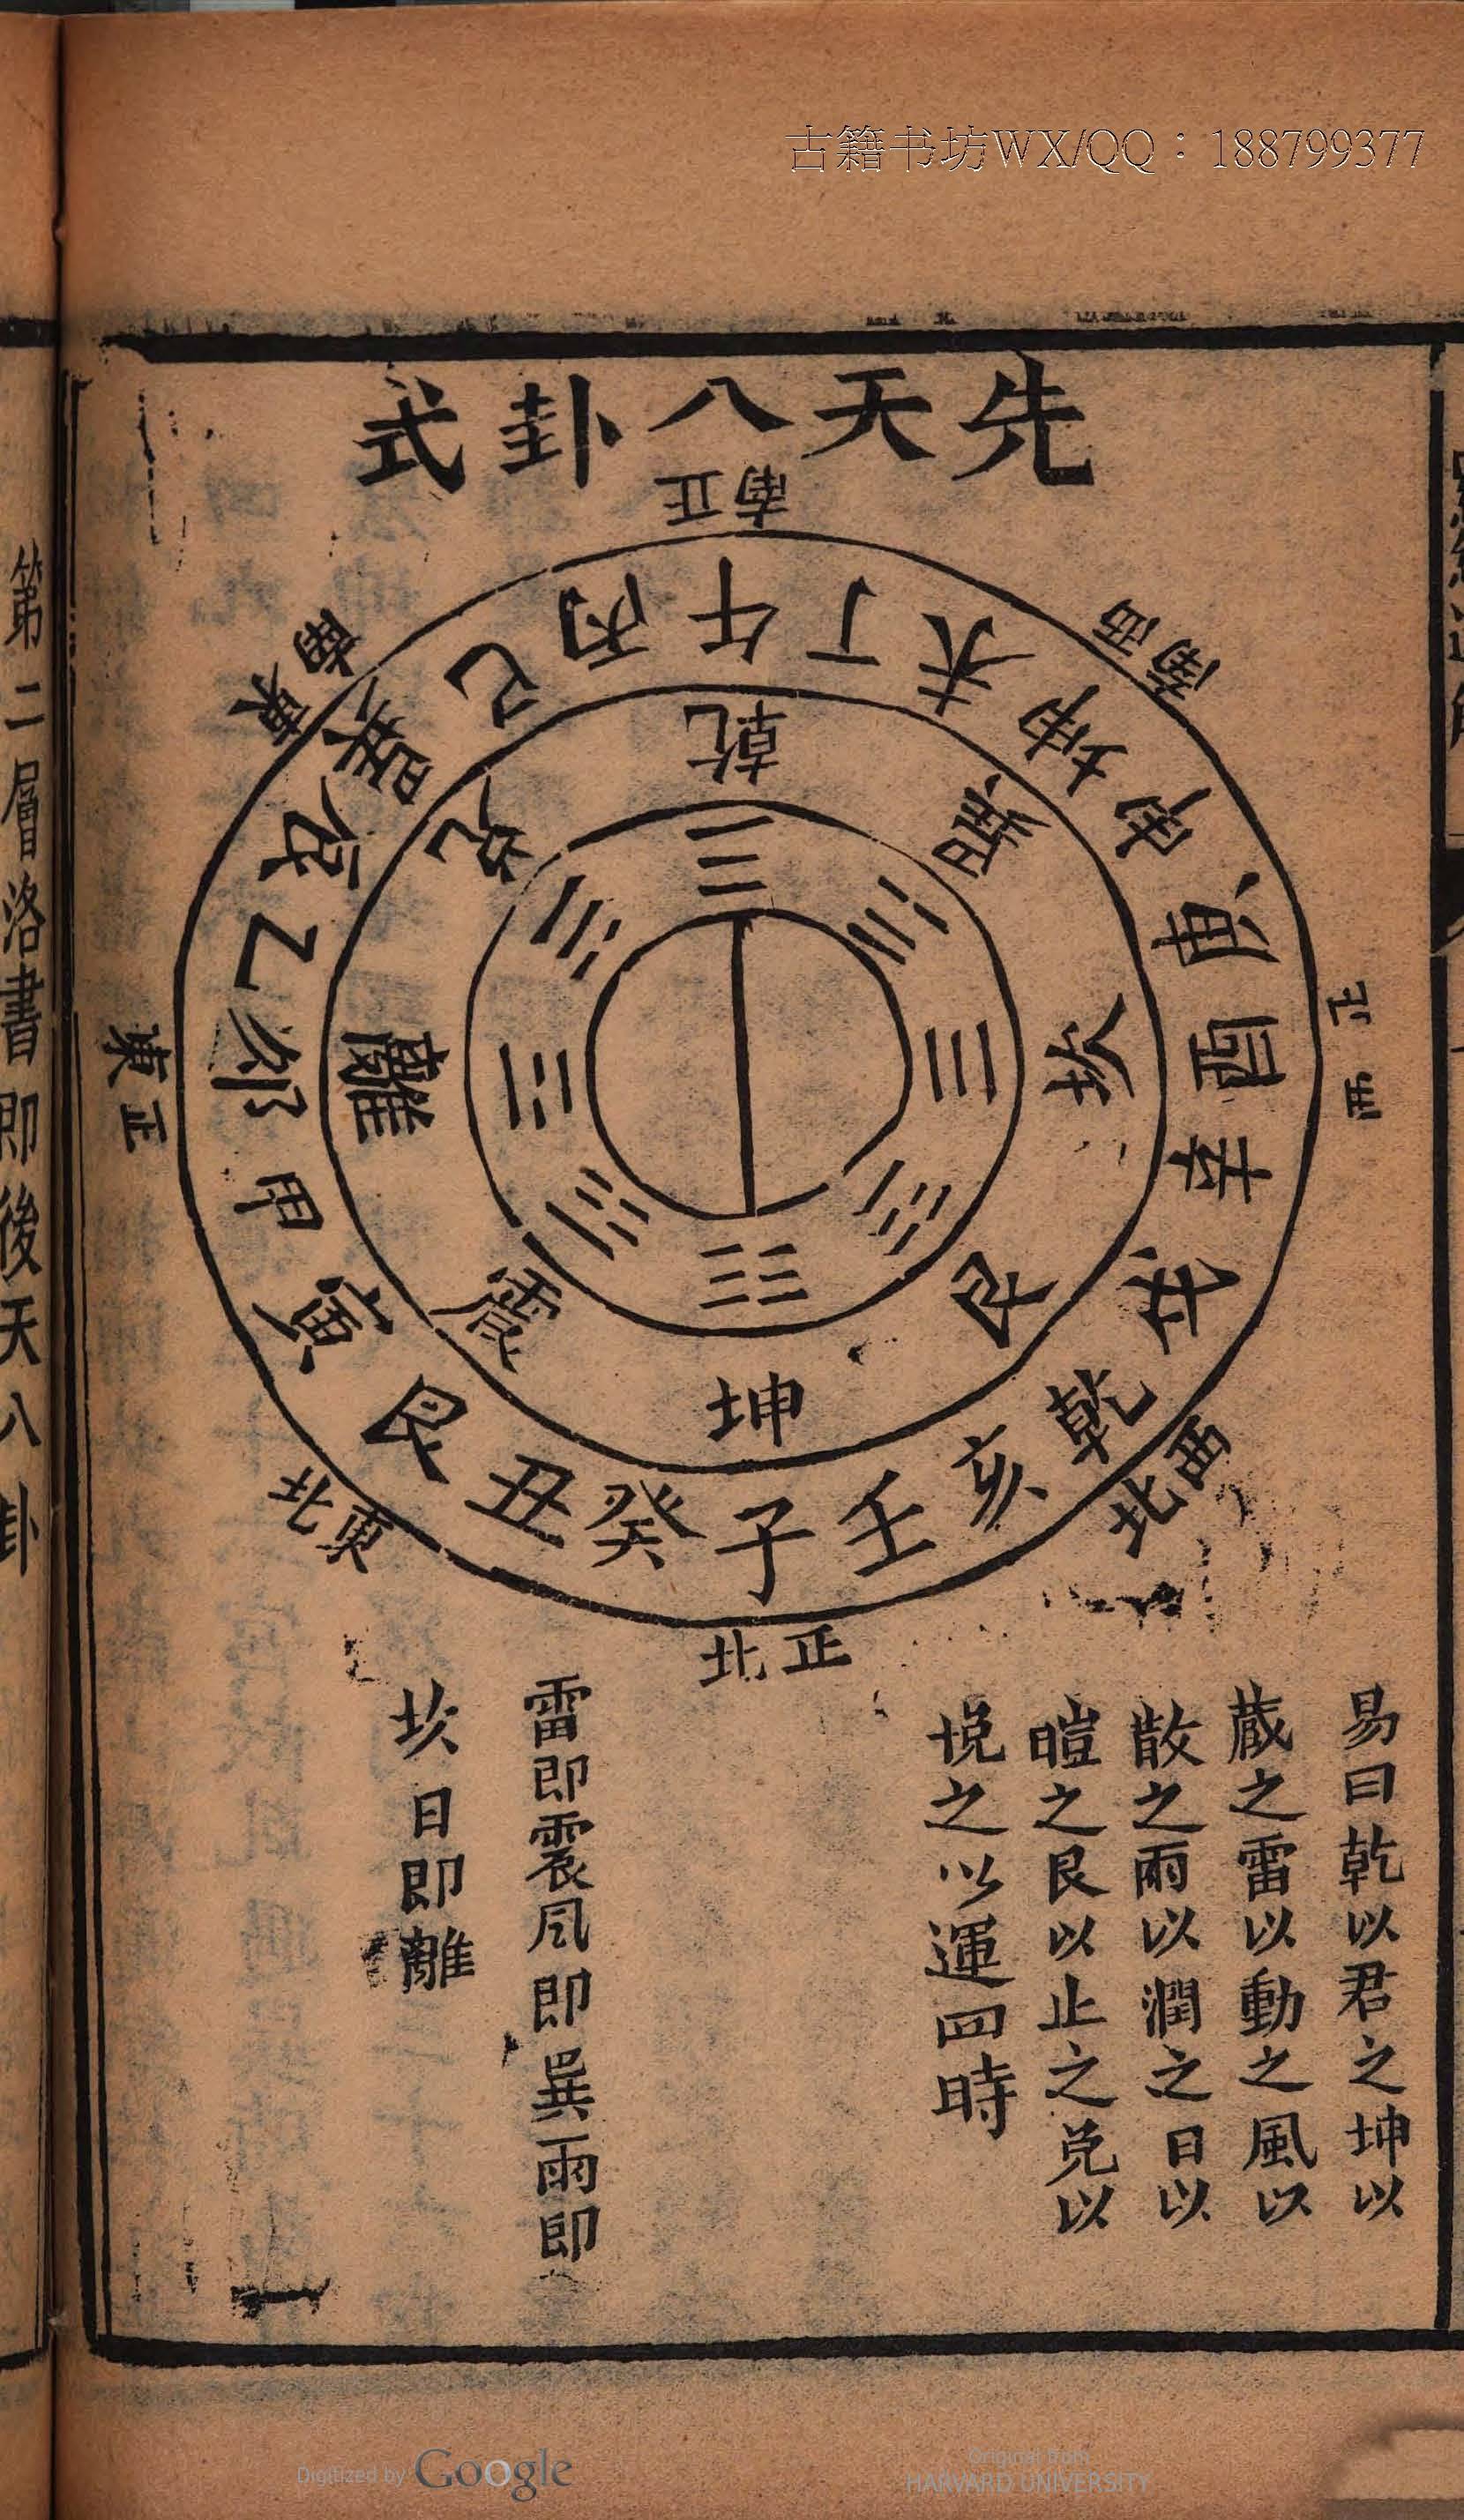 古籍书坊WX/QQ：188799377
先天八卦式
正南
西南
正西
西北
正北
東北
正東
東南
午丁未坤申庚酉辛戌乾亥壬子癸丑艮寅甲卯乙辰巽巳丙
乾巽坎艮坤震離兌
☰ ☴ ☵ ☶ ☷ ☳ ☲ ☱
易曰乾以君之坤以
蔵之雷以動之風以
散之雨以潤之日以
暄之艮以止之兌以
悅之以運四時
雷即震风即巽雨即
坎日即離
第二層洛書即後天八卦
Digitized by Google
Original from
HARVARD UNIVERSITY